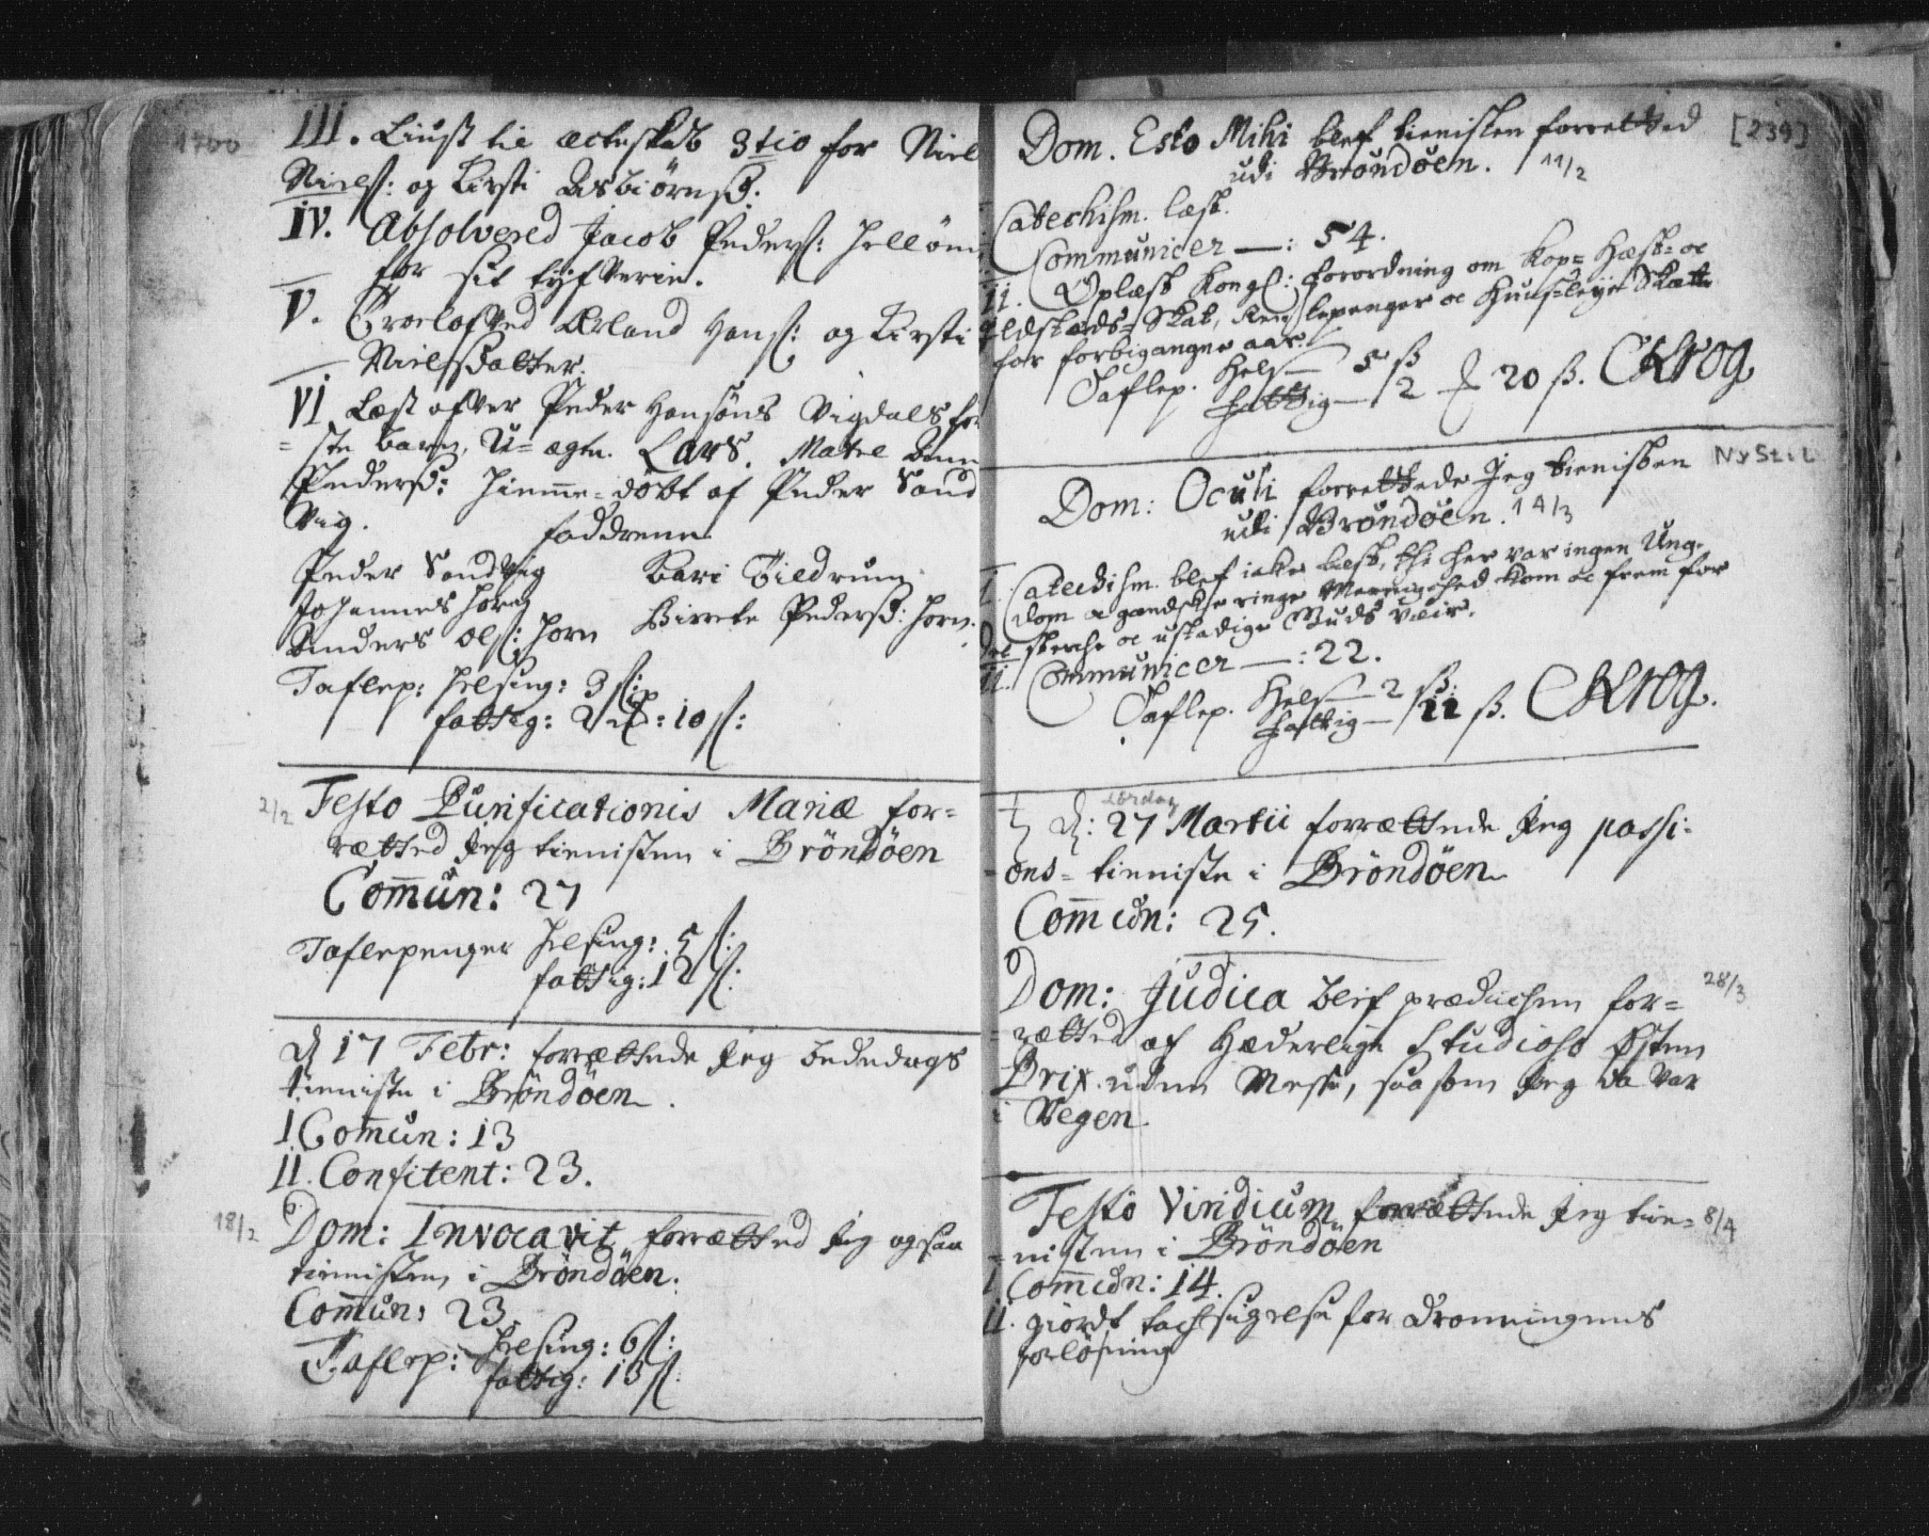 1700
III. Liust til æcteskab 3tio for Niel
Nielß: og Kirsti Asbiörnß.
IV. Absolvered Jacob Pederß: Hellöen
for sit tyfverie.
V. Troelofved Erland Hanß: og Kirsti
Nielßdatter.
VI Læst ofver Peder Hansöns Vigdals før
= ste barn, U=ægte. Lars. Mater Anne
Pedersd: Hiemme=döbt af Peder Sand
Vig. faddrene
Peder Sandvig Kari Tildrum
Johannes Horn
Anders Olß: Horn Birrete Pedersd: Horn.
Taflep: Helsing: 3 ß:
fattig: 2 10 ß:
2/2
Festo Purificationis Mariæ for=
rætted Jeg tienisten i Bröndöen
Com̄un: 27
Taflepenger Helsing: 5 ß:
fattig: 12 ß:
D 17 Febr: forrættede Jeg bededags
tieniste i Bröndöen.
I Com̄un: 13
II. Confitent: 23.
18/2
Dom: Invocavit forrætted Jeg ogsaa
tienisten i Bröndöen.
Com̄un: 23
Taflep: Helsing: 6 ß:
fattig: 13 ß:
[239]
Dom. Esto Mihi blef tienisten forretted
udi Brøndøen. 11/2
Catechism. læst.
Communicer —: 54.
II. Oplæst Kongl: forordning om Kop= Hæst= oc
Ildsteds= Skat, Rentepenger oc Huusleye Skatt
for forbigangne aar.
Taflep. Hels— 5 ß
fattig— 2 20 ß. CKrog
Dom: Oculi forrettede Jeg tienisten Ny Stil
udi Brøndøen. 14/3
I. Catechism. blef icke læst, thi her var ingen Ung-
dom oc gandske ringe Menighed kom oc frem for
det sterche oc ustadige Guds veir.
II. Communicer —: 22.
Taflep. Hels— 2 ß.
fattig— 11 ß. CKrog.
Lördag
D: 27 Martii forrættede Jeg passi=
ons= tieniste i Bröndöen
Com̄un: 25.
Dom: Judica blef prædichen for= 28/3
= rætted af Hæderlige Studioso Østen
Brix. uden Messe, saasom Jeg da var
i Vegen
Festo Viridium forrættede Jeg tie= 8/4
= nisten i Bröndöen
I Com̄un: 14.
II. giordt tachsigelse for Dronningens
forlösning